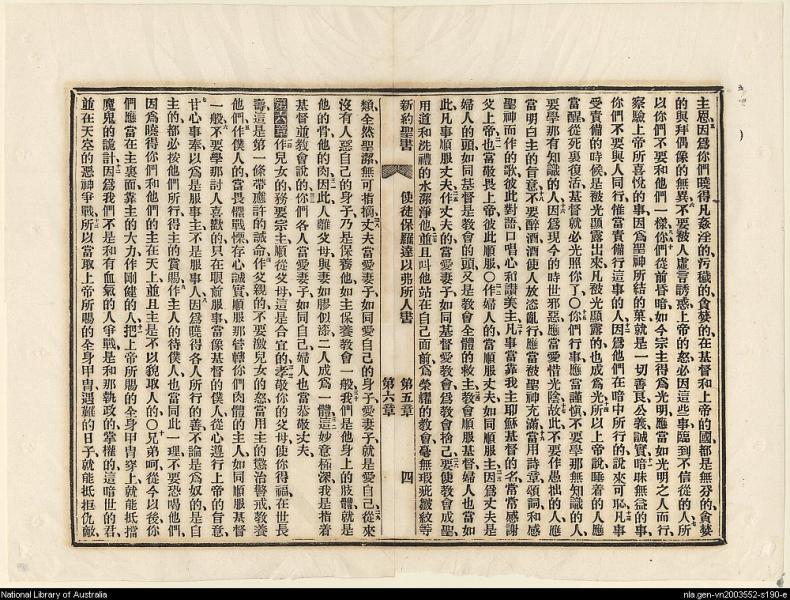 主恩、因爲你們曉得凡姦淫的、污穢的、貪婪的、在基督和上帝的國、都是無分的、貪婪
的與拜偶像的無異、不要被人虛言誘惑、上帝的怒、必因這些事、臨到不信從的人、所
以你們不要和他們一樣、你們從前昏暗、如今宗主得爲光明、應當如光明之人而行、
察驗上帝所喜悅的事、因爲聖神所結的菓、就是一切善良公義誠實、暗昧無益的事、
你們不要與人同行、惟當責備行這事的人、因爲他們在暗中所行的、說來可恥、凡事
受責備的時候、是被光顯露出來、凡被光顯露的也成爲光、所以上帝說、睡着的人應
當醒、從死裏復活、基督就必光照你了、○你們行事應當謹愼、不要學那無知識的人、
要學那有知識的人、因爲現今的時世邪惡、應當愛惜光陰、故此不要作愚拙的人、應
當明白主的旨意、不要醉酒、酒使人放恣亂行、應當被聖神充滿、當用詩章頌詞、和感
聖神而作的歌、彼此對語、口唱心和、讚美主、凡事當靠我主耶穌基督的名、常常感謝
父上帝、也當敬畏上帝、彼此順服、○作婦人的、當順服丈夫、如同順服主、因爲丈夫是
婦人的頭、如同基督是教會的頭、又是教會全體的救主、教會順服基督、婦人也當如
此、凡事順服丈夫、作丈夫的、當愛妻子、如同基督愛教會、爲教會捨己、要使教會成聖、
用道和洗禮的水潔淨他、並且叫他站在自己面前、爲榮耀的教會、毫無瑕疵皺紋等
新約聖書　使徒保羅達以弗所人書　第五章　第六章　四
類、全然聖潔、無可指摘、丈夫當愛妻子、如同愛自己的身子、愛妻子、就是愛自己、從來
沒有人惡自己的身子、乃是保養他、如主保養教會一般、我們是他身上的肢體、就是
他的骨他的肉、因此人離父母、與妻如膠似漆、二人成爲一體、這妙意極深、我是指着
基督並教會說的、你們各人當愛妻子、如同自己、婦人也當恭敬丈夫、
第六章　作兒女的、務要宗主順從父母、這是合宜的、孝敬你的父母、使你得福、在世長
壽、這是第一條帶應許的誡命、作父親的、不要激兒女的怒、當用主的懲治警戒敎養
他們、作僕人的、當畏懼戰慄、存心誠實、順服那管轄你們肉體的主人、如同順服基督
一般、不要學那討人喜歡的、只在眼前服事、當像基督的僕人、從心遵行上帝的旨意、
甘心事奉、以爲是服事主、不是服事人、因爲曉得各人所行的善、不論是爲奴的、是自
主的、都必按他們所行、得主的賞賜、作主人的、待僕人也當同此一理、不要恐嚇他們、
因爲曉得你們和他們的主在天上、並且主是不以貌取人的、○兄弟呵、從今以後、你
們應當在主裏面、靠主的大力、作剛健的人、把上帝所賜的全身甲冑穿上、就能抵擋
魔鬼的詭計、因爲我們不是和有血氣的人爭戰、是和那執政的、掌權的、這暗世的君、
並在天空的惡神爭戰、所以當取上帝所賜的全身甲冑、遇難的日子、就能抵拒仇敵、
National Library of Australia
nla.gen-vn2003552-s190-e